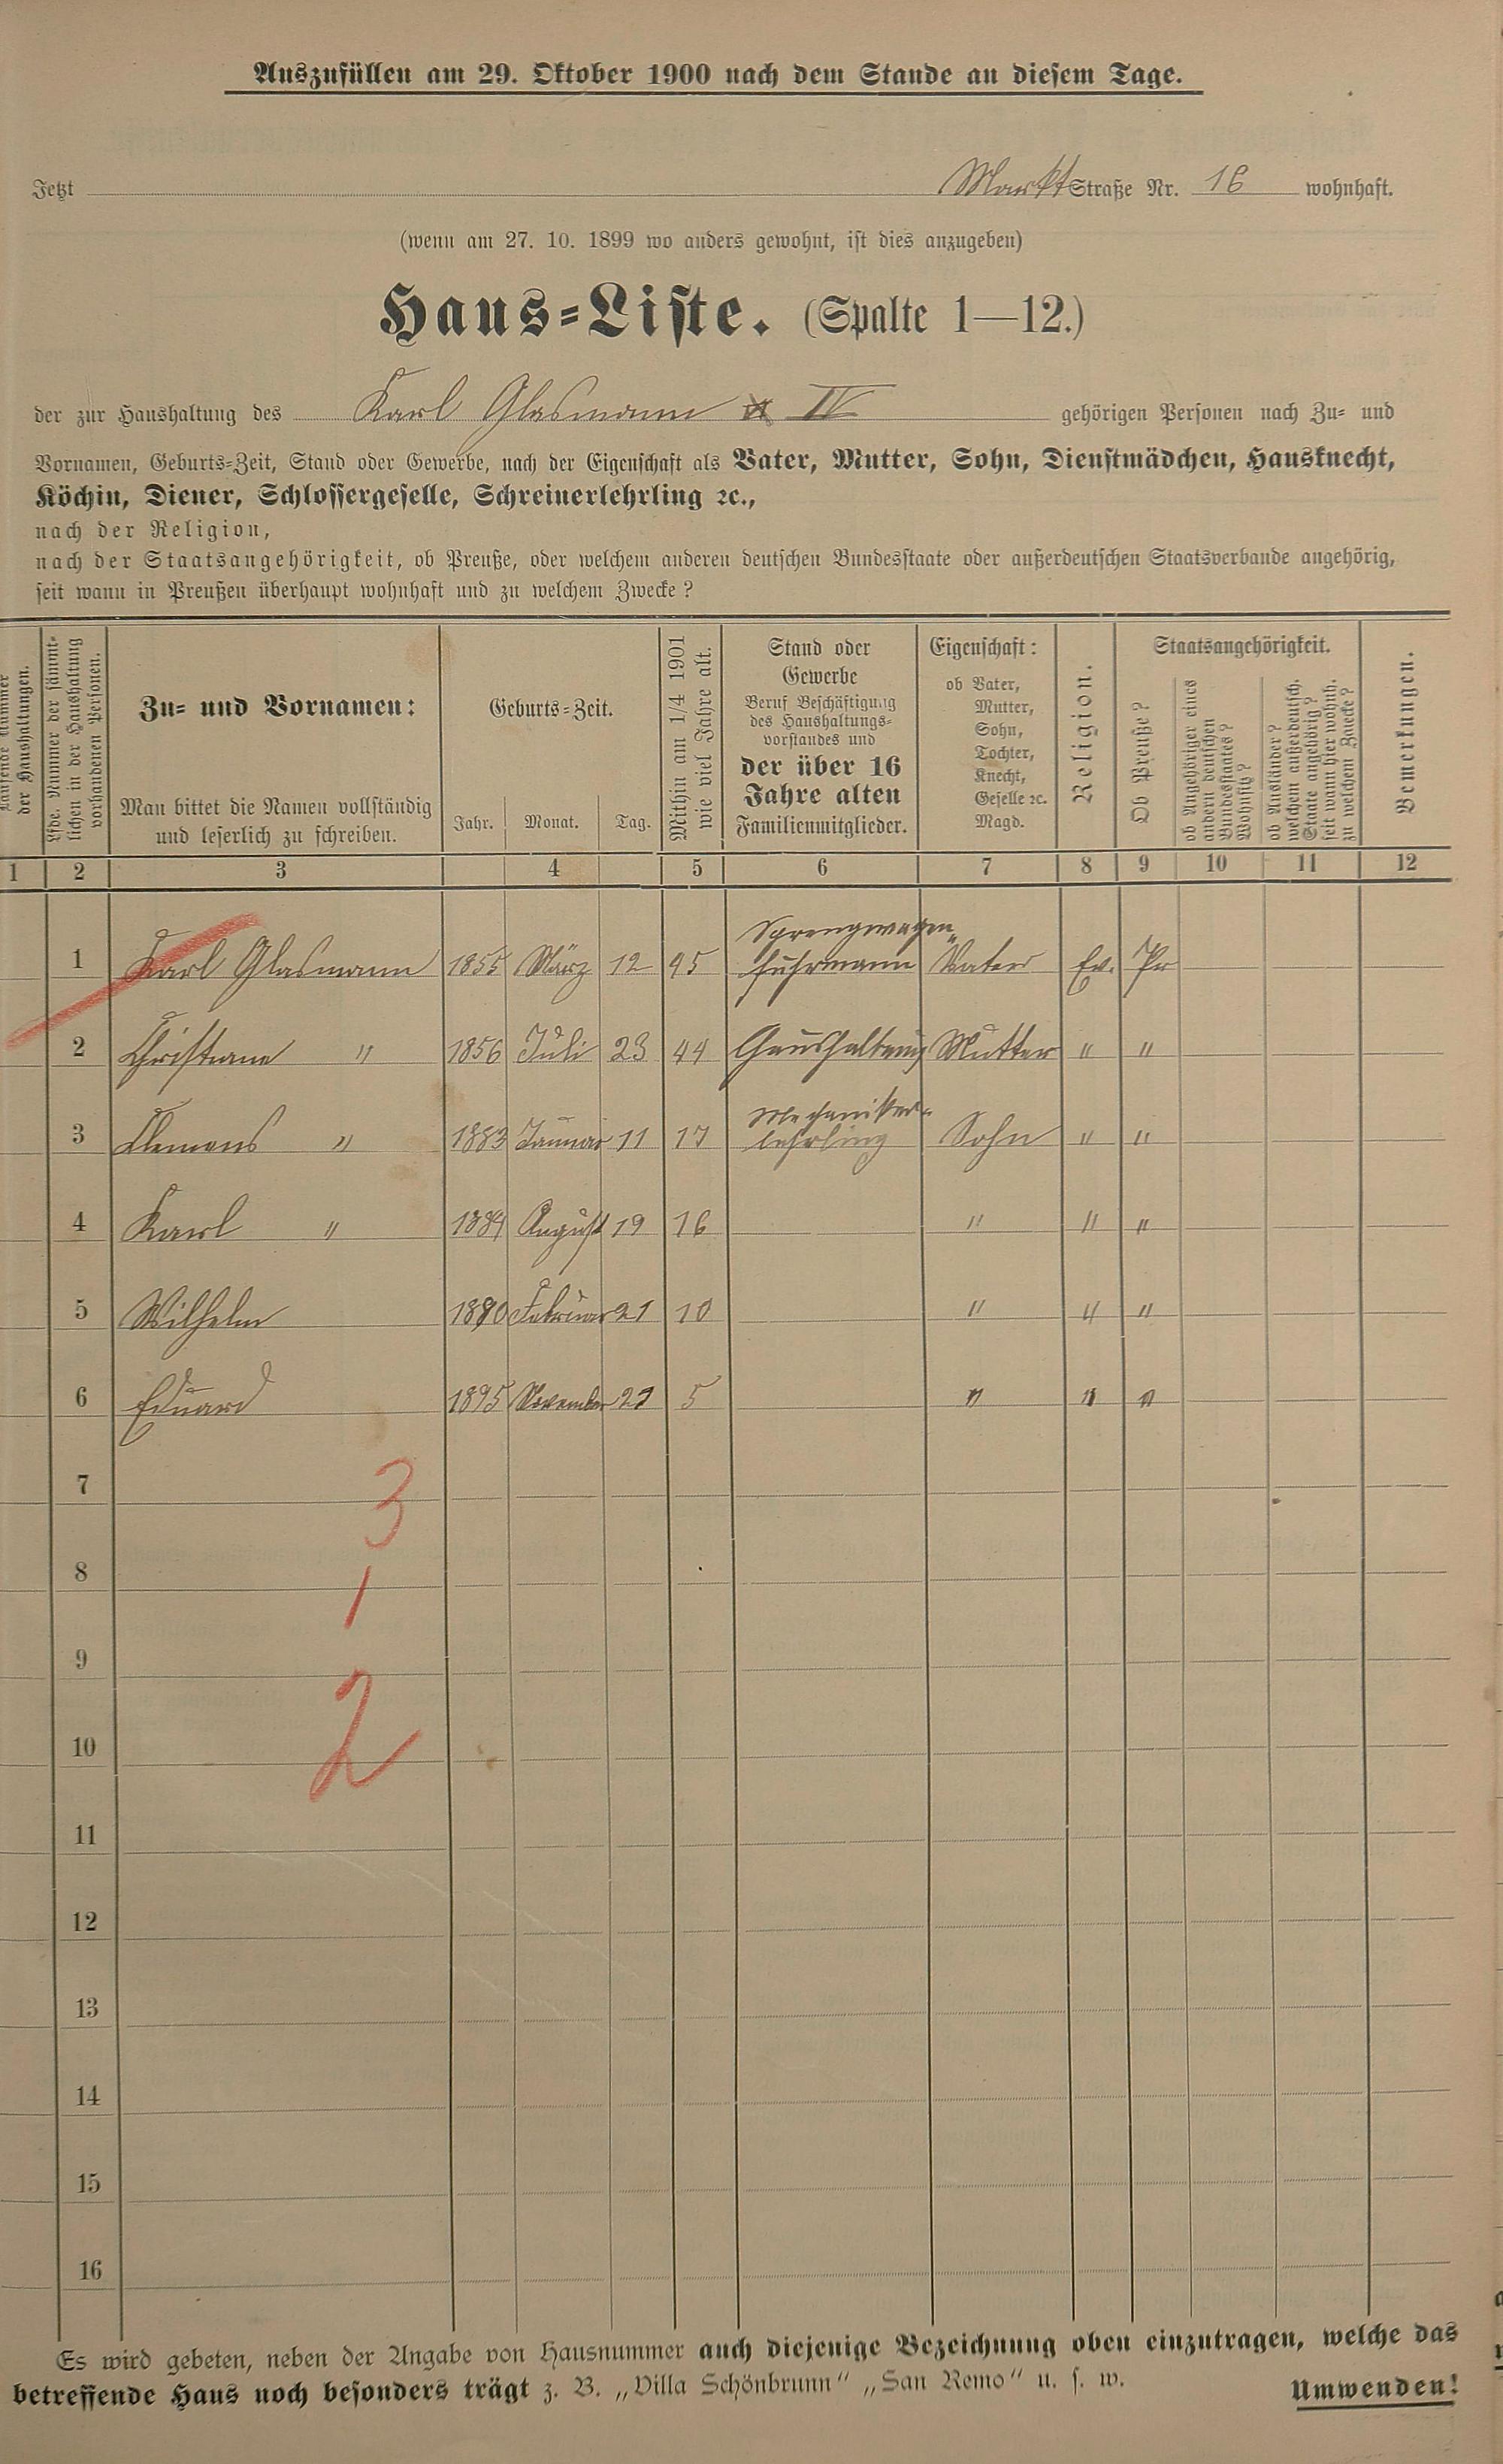 Auszufüllen am 29. Oktober 1900 nach dem Stande an diesem Tage.
Jetzt Markt Straße Nr. 16 wohnhaft.
(wenn am 27. 10. 1899 wo anders gewohnt, ist dies anzugeben)
Haus=Liste. (Spalte 1—12.)
der zur Haushaltung des Karl Glasmann IV gehörigen Personen nach Zu= und
Vornamen, Geburts=Zeit, Stand oder Gewerbe, nach der Eigenschaft als Vater, Mutter, Sohn, Dienstmädchen, Hausknecht,
Köchin, Diener, Schlossergeselle, Schreinerlehrling ꝛc.,
nach der Religion,
nach der Staatsangehörigkeit, ob Preuße, oder welchem anderen deutschen Bundesstaate oder außerdeutschen Staatsverbande angehörig,
seit wann in Preußen überhaupt wohnhaft und zu welchem Zwecke?
Laufende Nummer
der Haushaltungen.
Lfde. Nummer der sämmt=
lichen in der Haushaltung
vorhandenen Personen.
Zu= und Vornamen:
Man bittet die Namen vollständig
und leserlich zu schreiben.
Geburts=Zeit.
Jahr. Monat. Tag.
Mithin am 1/4 1901
wie viel Jahre alt.
Stand oder
Gewerbe
Beruf Beschäftigung
des Haushaltungs=
vorstandes und
der über 16
Jahre alten
Familienmitglieder.
Eigenschaft:
ob Vater,
Mutter,
Sohn,
Tochter,
Knecht,
Geselle ꝛc.
Magd.
Religion.
Staatsangehörigkeit.
Ob Preuße?
ob Angehöriger eines
andern deutschen
Bundesstaates?
Wohnsitz?
ob Ausländer?
welchem außerdeutsch.
Staate angehörig?
seit wann hier wohnh.
zu welchem Zwecke?
Bemerkungen.
1 2 3 4 5 6 7 8 9 10 11 12
Sprengwagen=
1 Karl Glasmann 1855 März 12 45 fuhrmann Vater Ev. Pr
2 Christiane " 1856 Juli 23 44 Haushaltung Mutter " "
Mechaniker=
3 Clemens " 1883 Januar 11 17 lehrling Sohn " "
4 Karl " 1884 August 19 16 " " "
5 Wilhelm 1890 Februar 21 10 " " "
6 Eduard 1895 November 5 " " "
7 3
8 1
9
10 2
11
12
13
14
15
16
Es wird gebeten, neben der Angabe von Hausnummer auch diejenige Bezeichnung oben einzutragen, welche das
betreffende Haus noch besonders trägt z. B. „Villa Schönbrunn" „San Remo" u. s. w.
Umwenden!